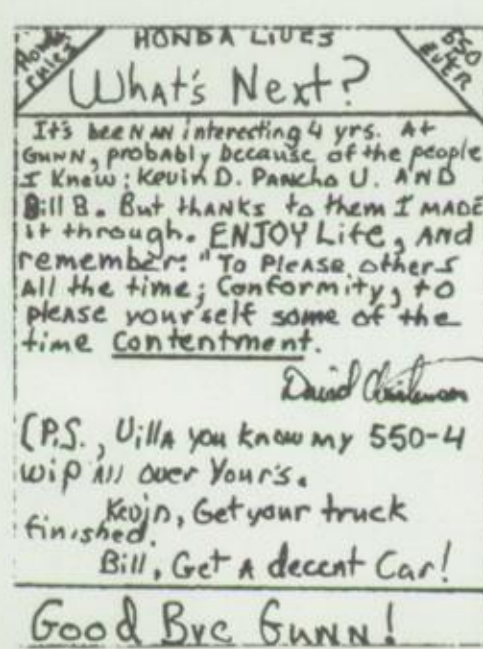 HONDA LIVES
HONDA
RULES
550
EVER
What's Next?
It's beeN AN interecting 4 yrs. At
GUNN, probably because of the people
I Knew: Kevin D. PANCho U. AND
Bill B. But tHANKS to them I MADE
it through. ENJOY Life, AND
remember: "To PLEASE others
All the time; Conformity, to
pleASE your self some of the
time Contentment.
David
(P.S., Villa you know my 550-4
wip All over Your's.
Kevin, Get your truck
finished.
Bill, Get A decent Car!
Good Bye Gunn!